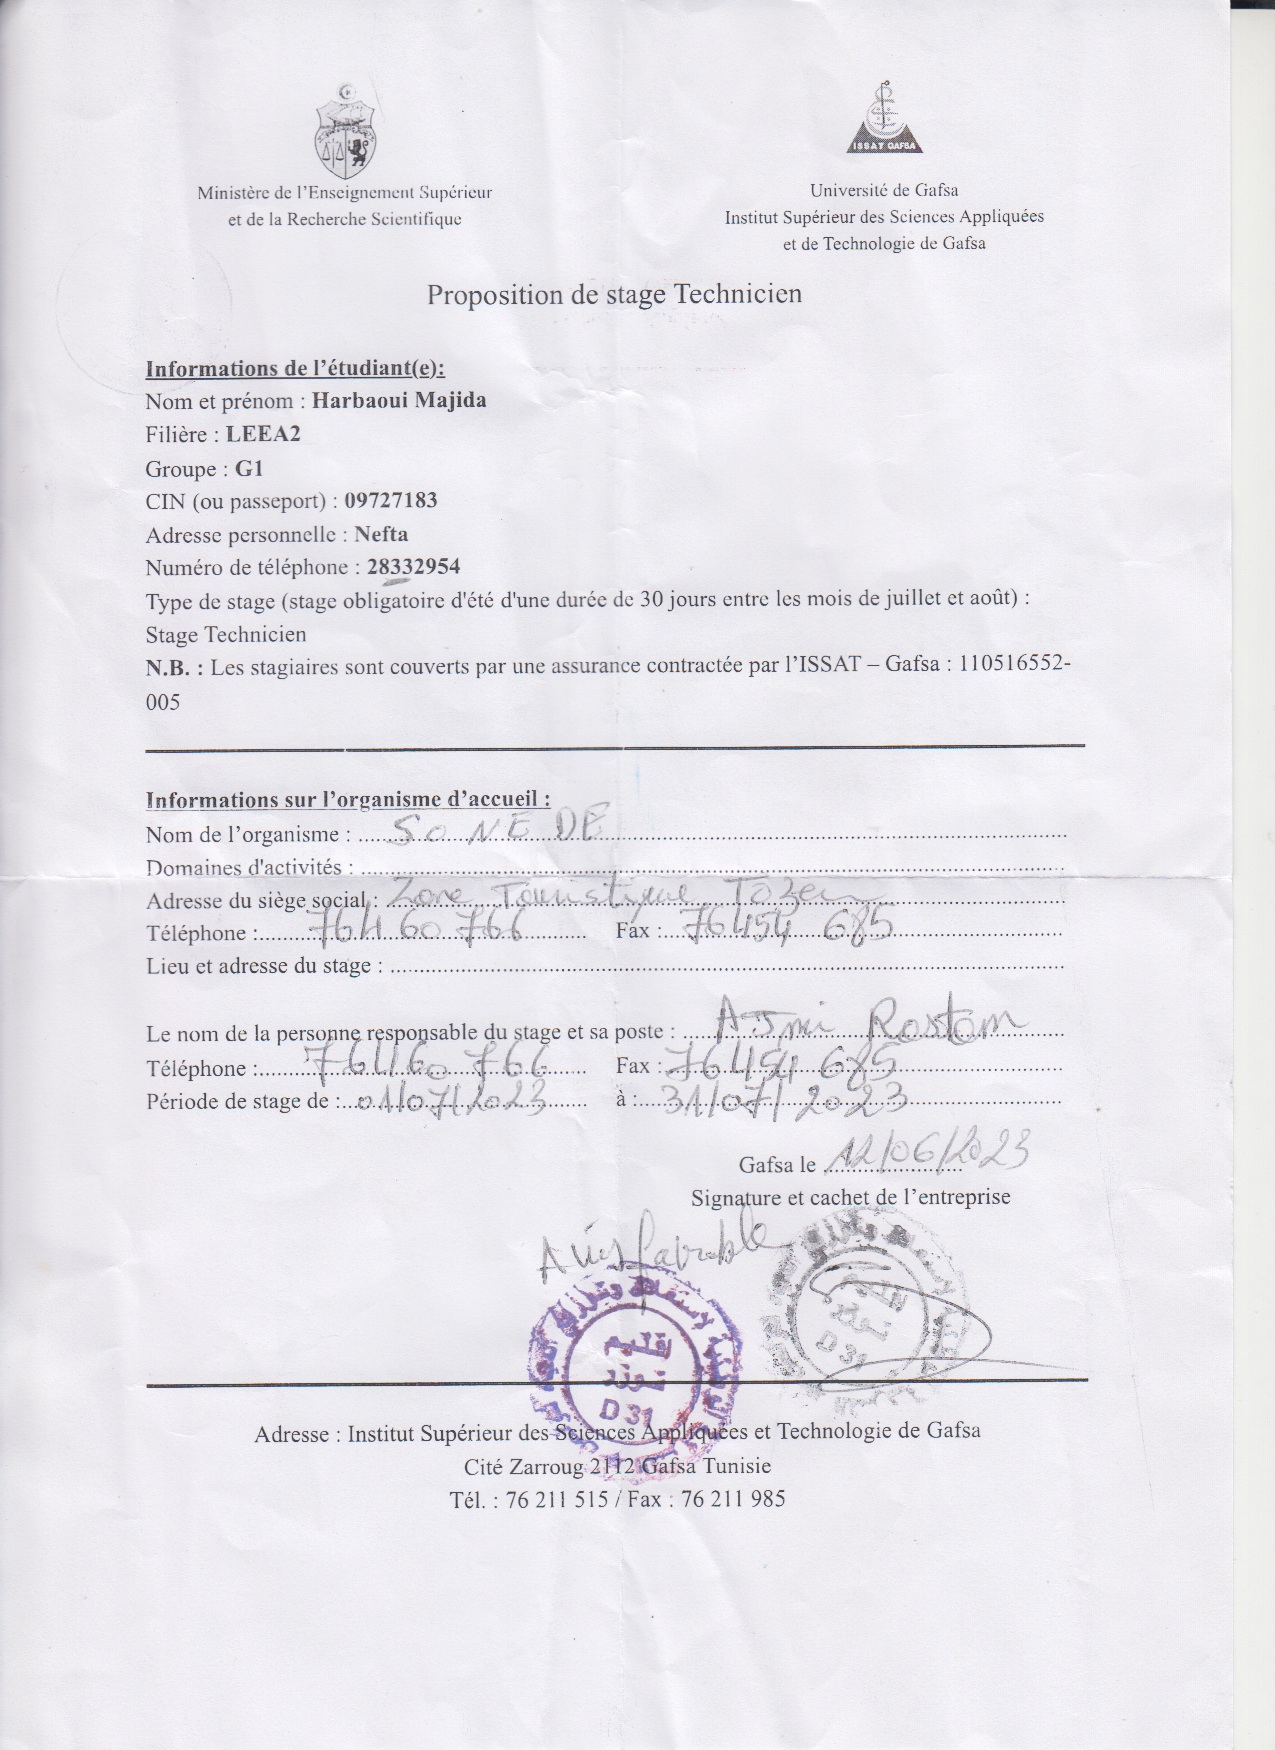 ISSAT GAFSA
Ministère de l'Enseignement Supérieur
et de la Recherche Scientifique
Université de Gafsa
Institut Supérieur des Sciences Appliquées
et de Technologie de Gafsa
Proposition de stage Technicien
Informations de l'étudiant(e):
Nom et prénom : Harbaoui Majida
Filière : LEEA2
Groupe : G1
CIN (ou passeport) : 09727183
Adresse personnelle : Nefta
Numéro de téléphone : 28332954
Type de stage (stage obligatoire d'été d'une durée de 30 jours entre les mois de juillet et août) :
Stage Technicien
N.B. : Les stagiaires sont couverts par une assurance contractée par l'ISSAT – Gafsa : 110516552-
005
Informations sur l'organisme d'accueil :
Nom de l'organisme : SONEDE
Domaines d'activités :
Adresse du siège social : Zone Touristique Tozeur
Téléphone : 76460766 Fax : 76454 685
Lieu et adresse du stage :
Le nom de la personne responsable du stage et sa poste : AJmi Rostom
Téléphone : 76460766 Fax : 76454 685
Période de stage de : 01/07/2023 à : 31/07/2023
Gafsa le 12/06/2023
Signature et cachet de l'entreprise
Avis favorable
إقليم
توزر
D 31
إقليم
توزر
D 31
Adresse : Institut Supérieur des Sciences Appliquées et Technologie de Gafsa
Cité Zarroug 2112 Gafsa Tunisie
Tél. : 76 211 515 / Fax : 76 211 985